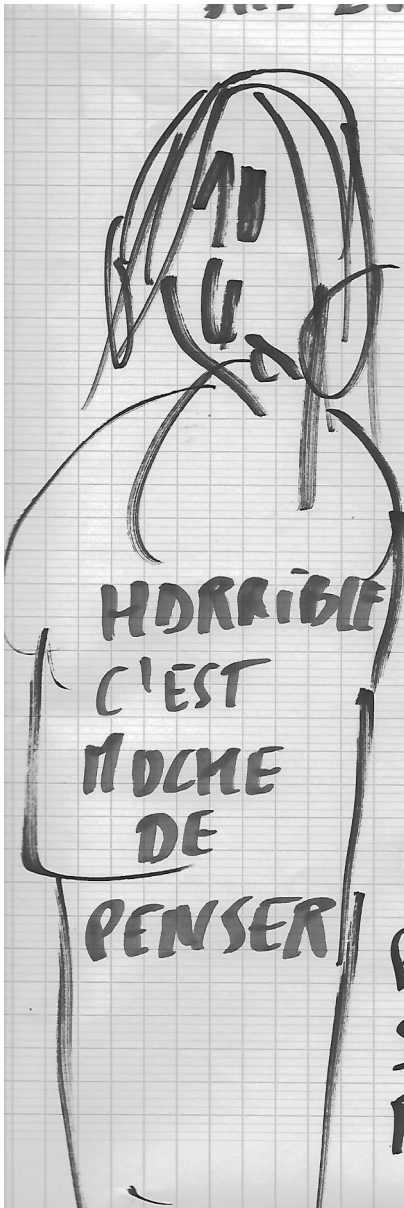 HORRIBLE
C'EST
MOCHE
DE
PENSER